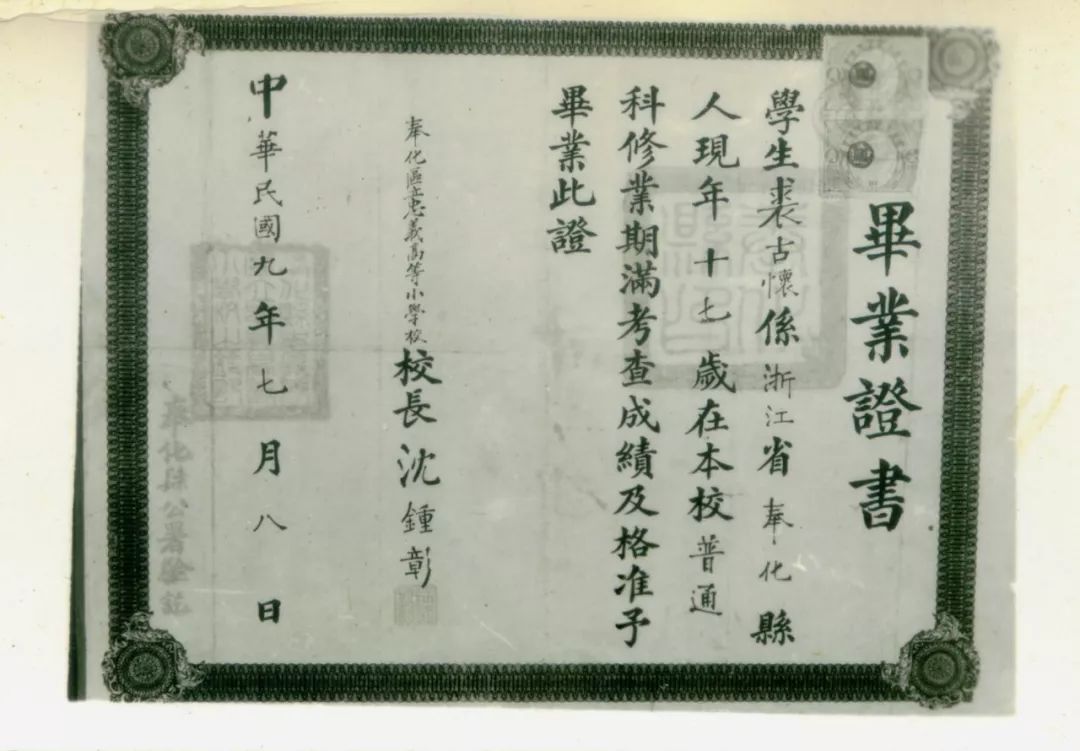 畢業證書
學生裘古懷係浙江省奉化縣
人現年十七歲在本校普通
科修業期滿考查成績及格准予
畢業此證
奉化區立忠義高等小學校校長沈鍾彰
中華民國九年七月八日
奉化縣公署驗訖